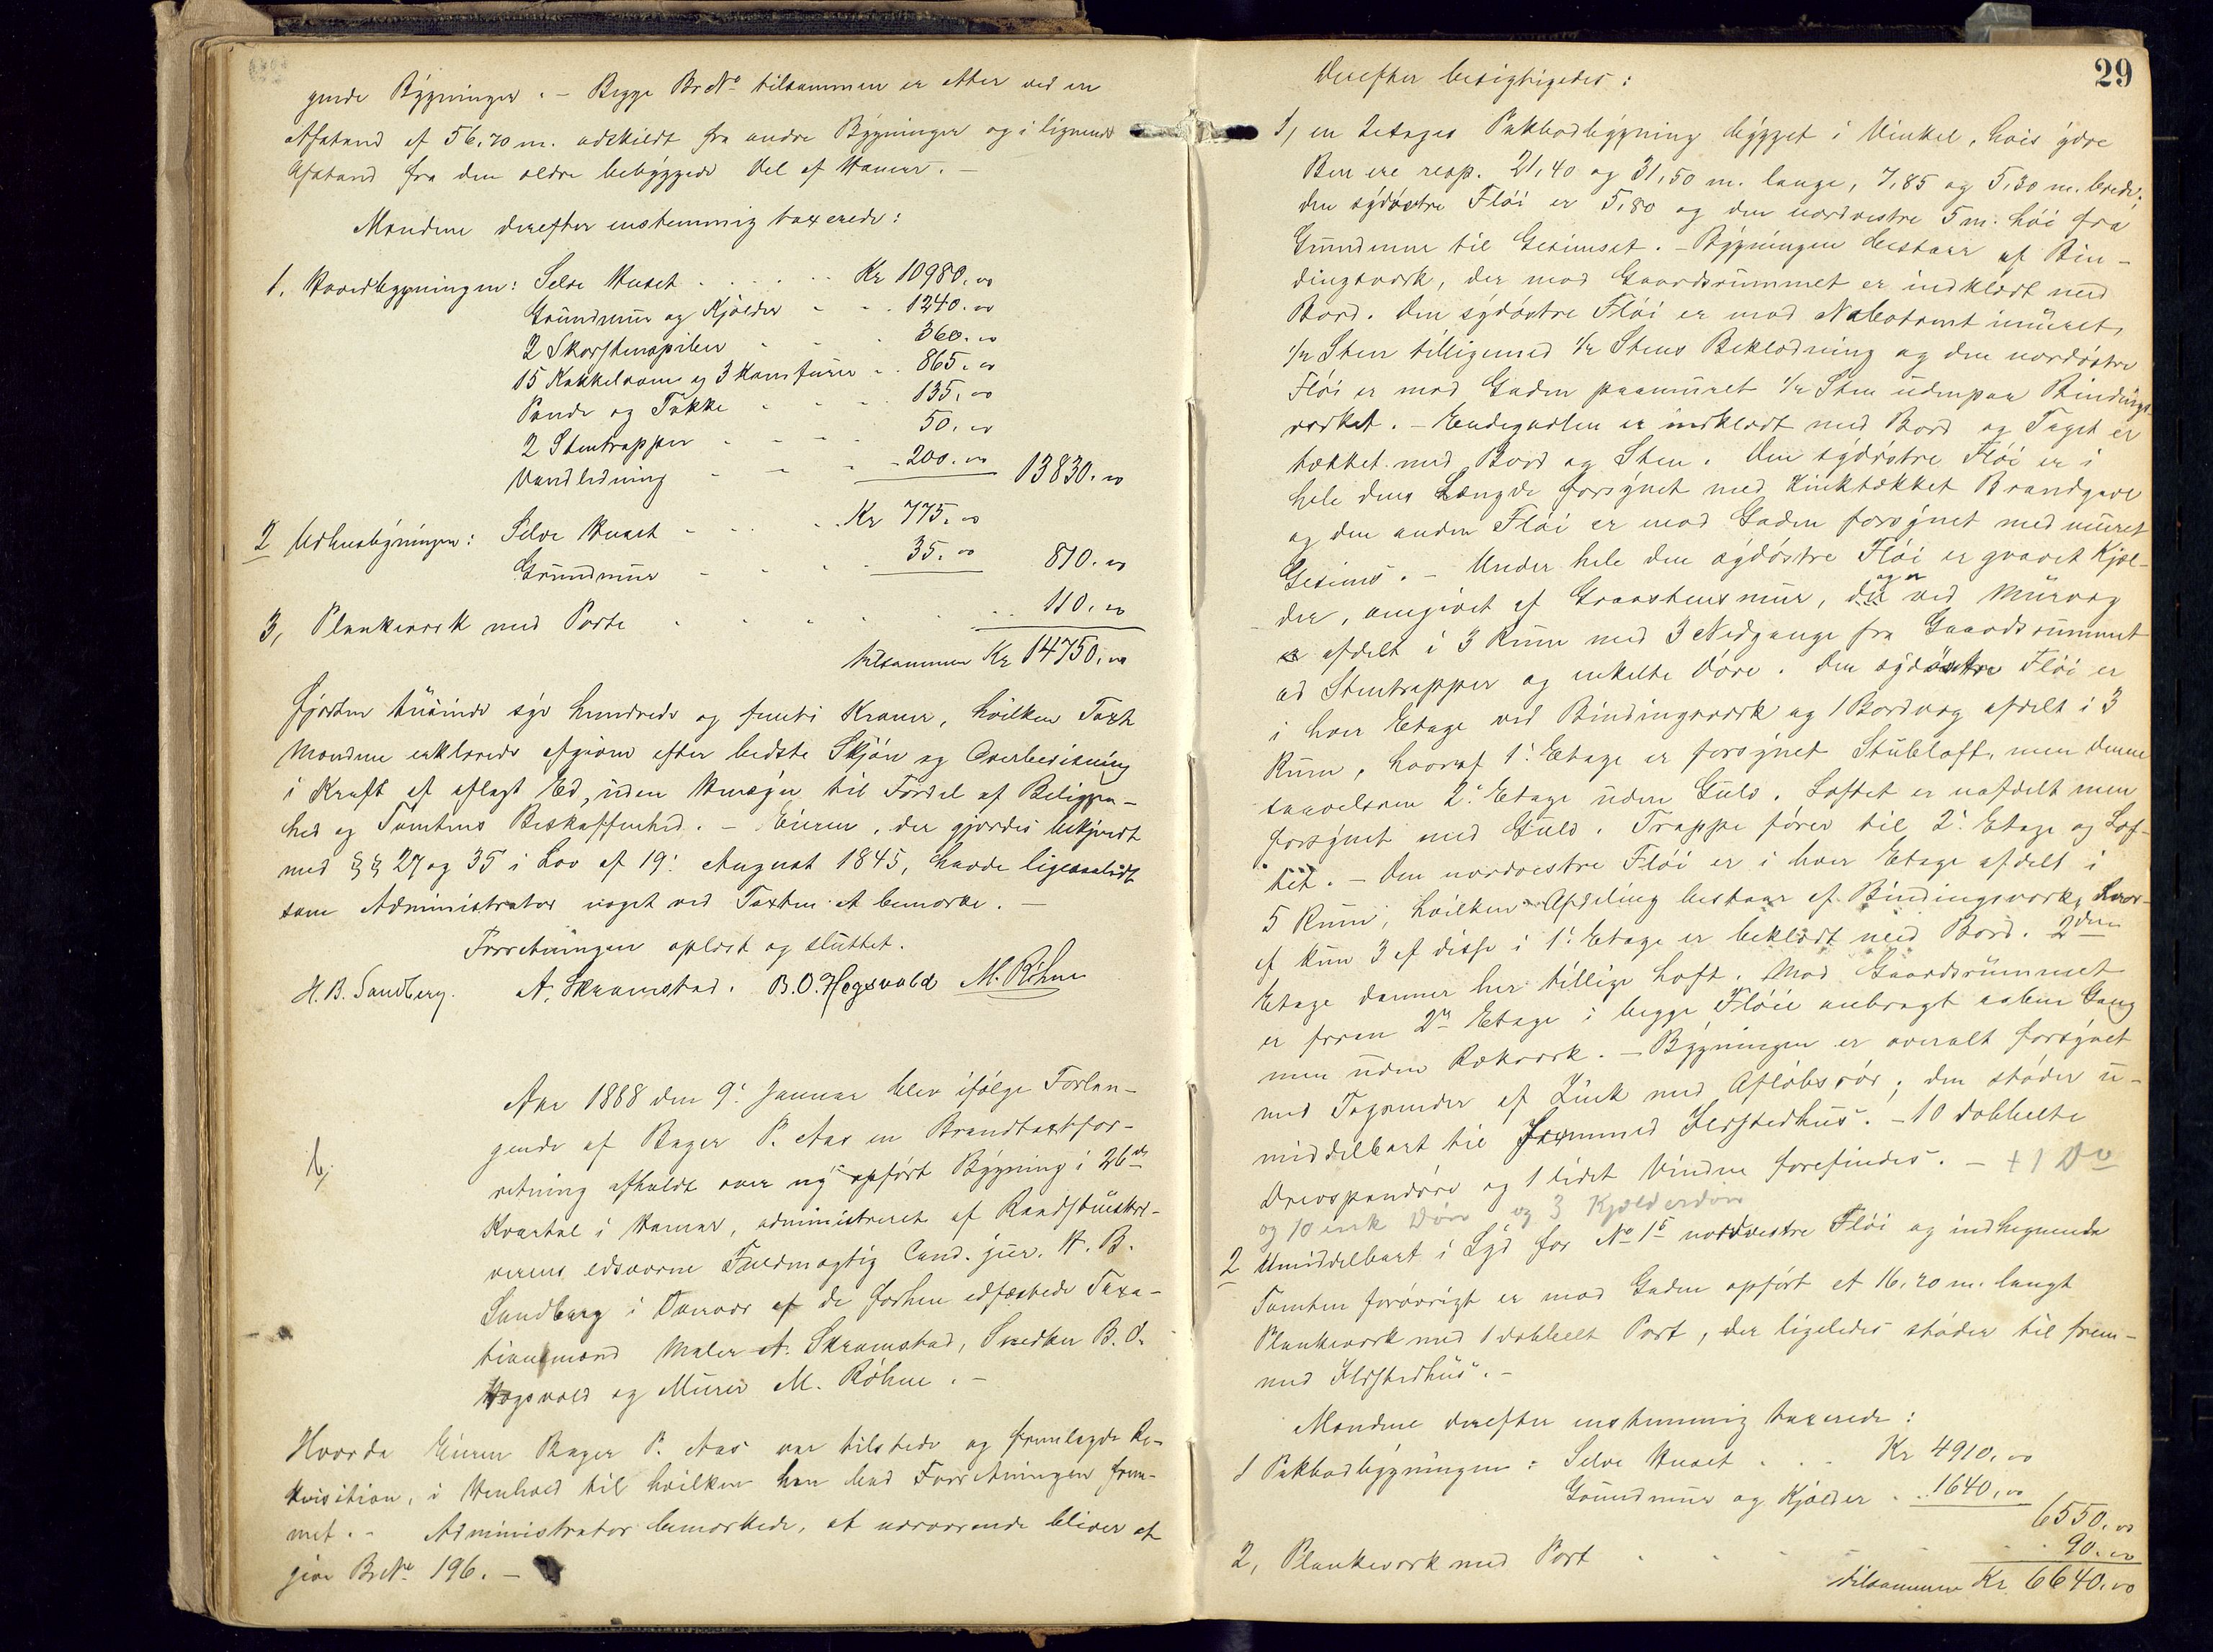 gende Bygninger. – Begge Br№ tilsammen er etter ved en
Afstand af 56,70 m. adskildt fra andre Bygninger og i lignende
Afstand fra den ældre bebyggede Del af Hamar. –
Mændene derefter enstemmig taxerede:
1. Hovedbygningen: Selve Huset . . . . Kr 10980.00
Grundmur og Kjælder - - . 1240.00
2 Skorstenspiber - - . 360.00
15 Kakkelovne og 3 Komfurer - . 865.00
Pande og Takke - - - . 135.00
2 Stentrapper - - - - 50.00
Vandledning - - - - 200.00 13830.00
2 Udhusbygningen: Selve Huset - - . . Kr 775.00
Grundmur - - - . 35.00 810.00
3, Plankeværk med Porte - - - . . . 110.00
tilsammen Kr 14750.00
fjorten tusinde syv hundrede og femti Kroner, hvilken Taxt
Mændene erklærede afgiven efter bedste Skjøn og Overbevisning
i Kraft af aflagt Ed, uden Hensyn til Fordel af Beliggen-
hed og Tomtens Beskaffenhed. – Eieren, der gjordes bekjendt
med §§ 27 og 35 i Lov af 19. August 1845, havde ligesaalidt
som Administrator noget ved Taxten at bemærke. –
Forretningen oplæst og sluttet.
H. B. Sandberg. A. Skramstad. B. O. Hegsvold M. Röhne
6,
Aar 1888 den 9. Januar blev ifølge Forlan-
gende af Bager P. Aas en Brandtaxtfor-
retning afholdt over ny opført Bygning i 26de
Kvartal i Hamar, administreret af Raadstueskri-
verens edsvorne Fuldmægtig Cand. jur. H. B.
Sandberg i Overvær af de forhen edfæstede Taxa-
tionsmænd Maler A. Skramstad, Snedker B. O.
Hogsvold og Murer M. Röhne. –
Hvorda Eieren Bager P. Aas var tilstede og fremlagde Re-
kvisition, i Henhold til hvilken han bad Forretningen frem-
met. – Administrator bemærkede, at nærværende bliver at
give Br№ 196. –
29
Derefter besigtigedes:
1, en 2etages Pakbodbygning bygget i Vinkel, hvis ydre
Ben ere resp. 21,40 og 31,50 m. lange, 7,85 og 5,30 m. brede;
den sydøstre Fløi er 5,80 og den nordvestre 5 m. høi fra
Grundmur til Gesimset. – Bygningen bestaar af Bin-
dingsværk, der mod Gaardsrummet er indklædt med
Bord. Den sydøstre Fløi er mod Nabotomt inmuret
1/2 Sten tilligemed 1/2 Stens Beklædning og den nordøstre
Fløi er mod Gaden paamuret 1/2 Sten udenpaa Bindings-
værket. – Endegavlen er indklædt med Bord og Taget er
tækket med Bord og Sten. Den sydøstre Fløi er i
hele dens Længde forsynet med Zinktækket Brandgavl
og den anden Fløi er mod Gaden forsynet med muret
Gesims. – Under hele den sydøstre Fløi er gravet Kjæl-
der, omgivet af Graastensmur, og er ved Murvæg
afdelt i 3 Rum med 3 Nedgange fra Gaardsrummet
ad Stentrapper og enkelte Døre. Den sydøstre Fløi er
i hver Etage ved Bindingsværk og 1 Bordvæg afdelt i 3
Rum, hvoraf 1. Etage er forsynet Stubloft, men denne
saavelsom 2. Etage uden Gulv. Loftet er uafdelt men
forsynet med Gulv. Trappe fører til 2. Etage og Lof-
tet. – Den nordvestre Fløi er i hver Etage afdelt i
5 Rum, hvilken Afdeling bestaar af Bindingsværk, hvor-
af kun 3 af disse i 1. Etage er beklædt med Bord. 2den
Etage danner her tillige Loft. Mod Gaardsrummet
er foran 2n Etage i begge Fløie anbragt aaben Gang
men uden Rækværk. – Bygningen er overalt forsynet
med Tagrender af Zink med Afløbsrør; den støder u-
middelbart til fremmed Ildstedhus. – 10 dobbelte
Drevspendøre og 1 lidet Vindue forefindes. – + 1 Do
og 10 enk Døre og 3 Kjælderdøre
2 Umiddelbart i Syd for № 1s nordvestre Fløi og indhegnende
Tomten forøvrigt er mod Gaden opført et 16,20 m. langt
Plankeværk med 1 dobbelt Port, der ligeledes støder til frem-
med Ildstedhus. –
Mændene derefter enstemmig taxerede:
1 Pakbodbygningen: Selve Huset . . . Kr 4910.00
Grundmur og Kjælder . . 1640.00
6550.00
2, Plankeværk med Port - - - - - . 90.00
tilsammen Kr 6640.00